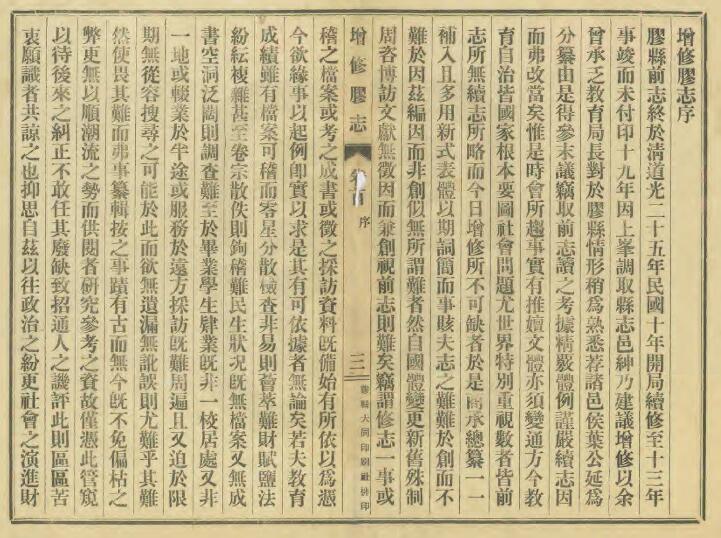 增修膠志序
膠縣前志終於清道光二十五年民國十年開局續修至十三年
事竣而未付印十九年因上峯調取縣志邑紳乃建議增修以余
曾承乏教育局長對於膠縣情形稍爲熟悉荐諸邑侯葉公延爲
分纂由是得參末議竊取前志讀之考據精覈體例謹嚴續志因
而弗改當矣惟是時會所趨事實有推嬗文體亦須變通方今教
育自治皆國家根本要圖社會問題尤世界特別重視數者皆前
志所無續志所略而今日增修所不可缺者於是商承總纂一一
補入且多用新式表體以期詞簡而事賅夫志之難難於創而不
難於因茲編因而非創似無所謂難者然自國體變更新舊殊制
周咨博訪文獻無徵因而兼創視前志則難矣竊謂修志一事或
增修膠志
序
三
膠縣大同印刷社排印
稽之檔案或考之成書或徵之採訪資料既備始有所依以爲憑
今欲緣事以起例即實以求是其有可依據者無論矣若夫教育
成績雖有檔案可稽而零星分散檢查非易則薈萃難財賦鹽法
紛紜複雜甚至卷宗散佚則鉤稽難民生狀況既無檔案又無成
書空洞泛闊則調查難至於畢業學生肄業既非一校居處又非
一地或輟業於半途或服務於遠方採訪既難周遍且又迫於限
期無從容搜尋之可能於此而欲無遺漏無訛誤則尤難乎其難
然使畏其難而弗事纂輯按之事蹟有古而無今既不免偏枯之
弊更無以順潮流之勢而供閱者研究參考之資故僅憑此管窺
以待後來之糾正不敢任其廢缺致招通人之譏評此則區區苦
衷願識者共諒之也抑思自茲以往政治之紛更社會之演進財